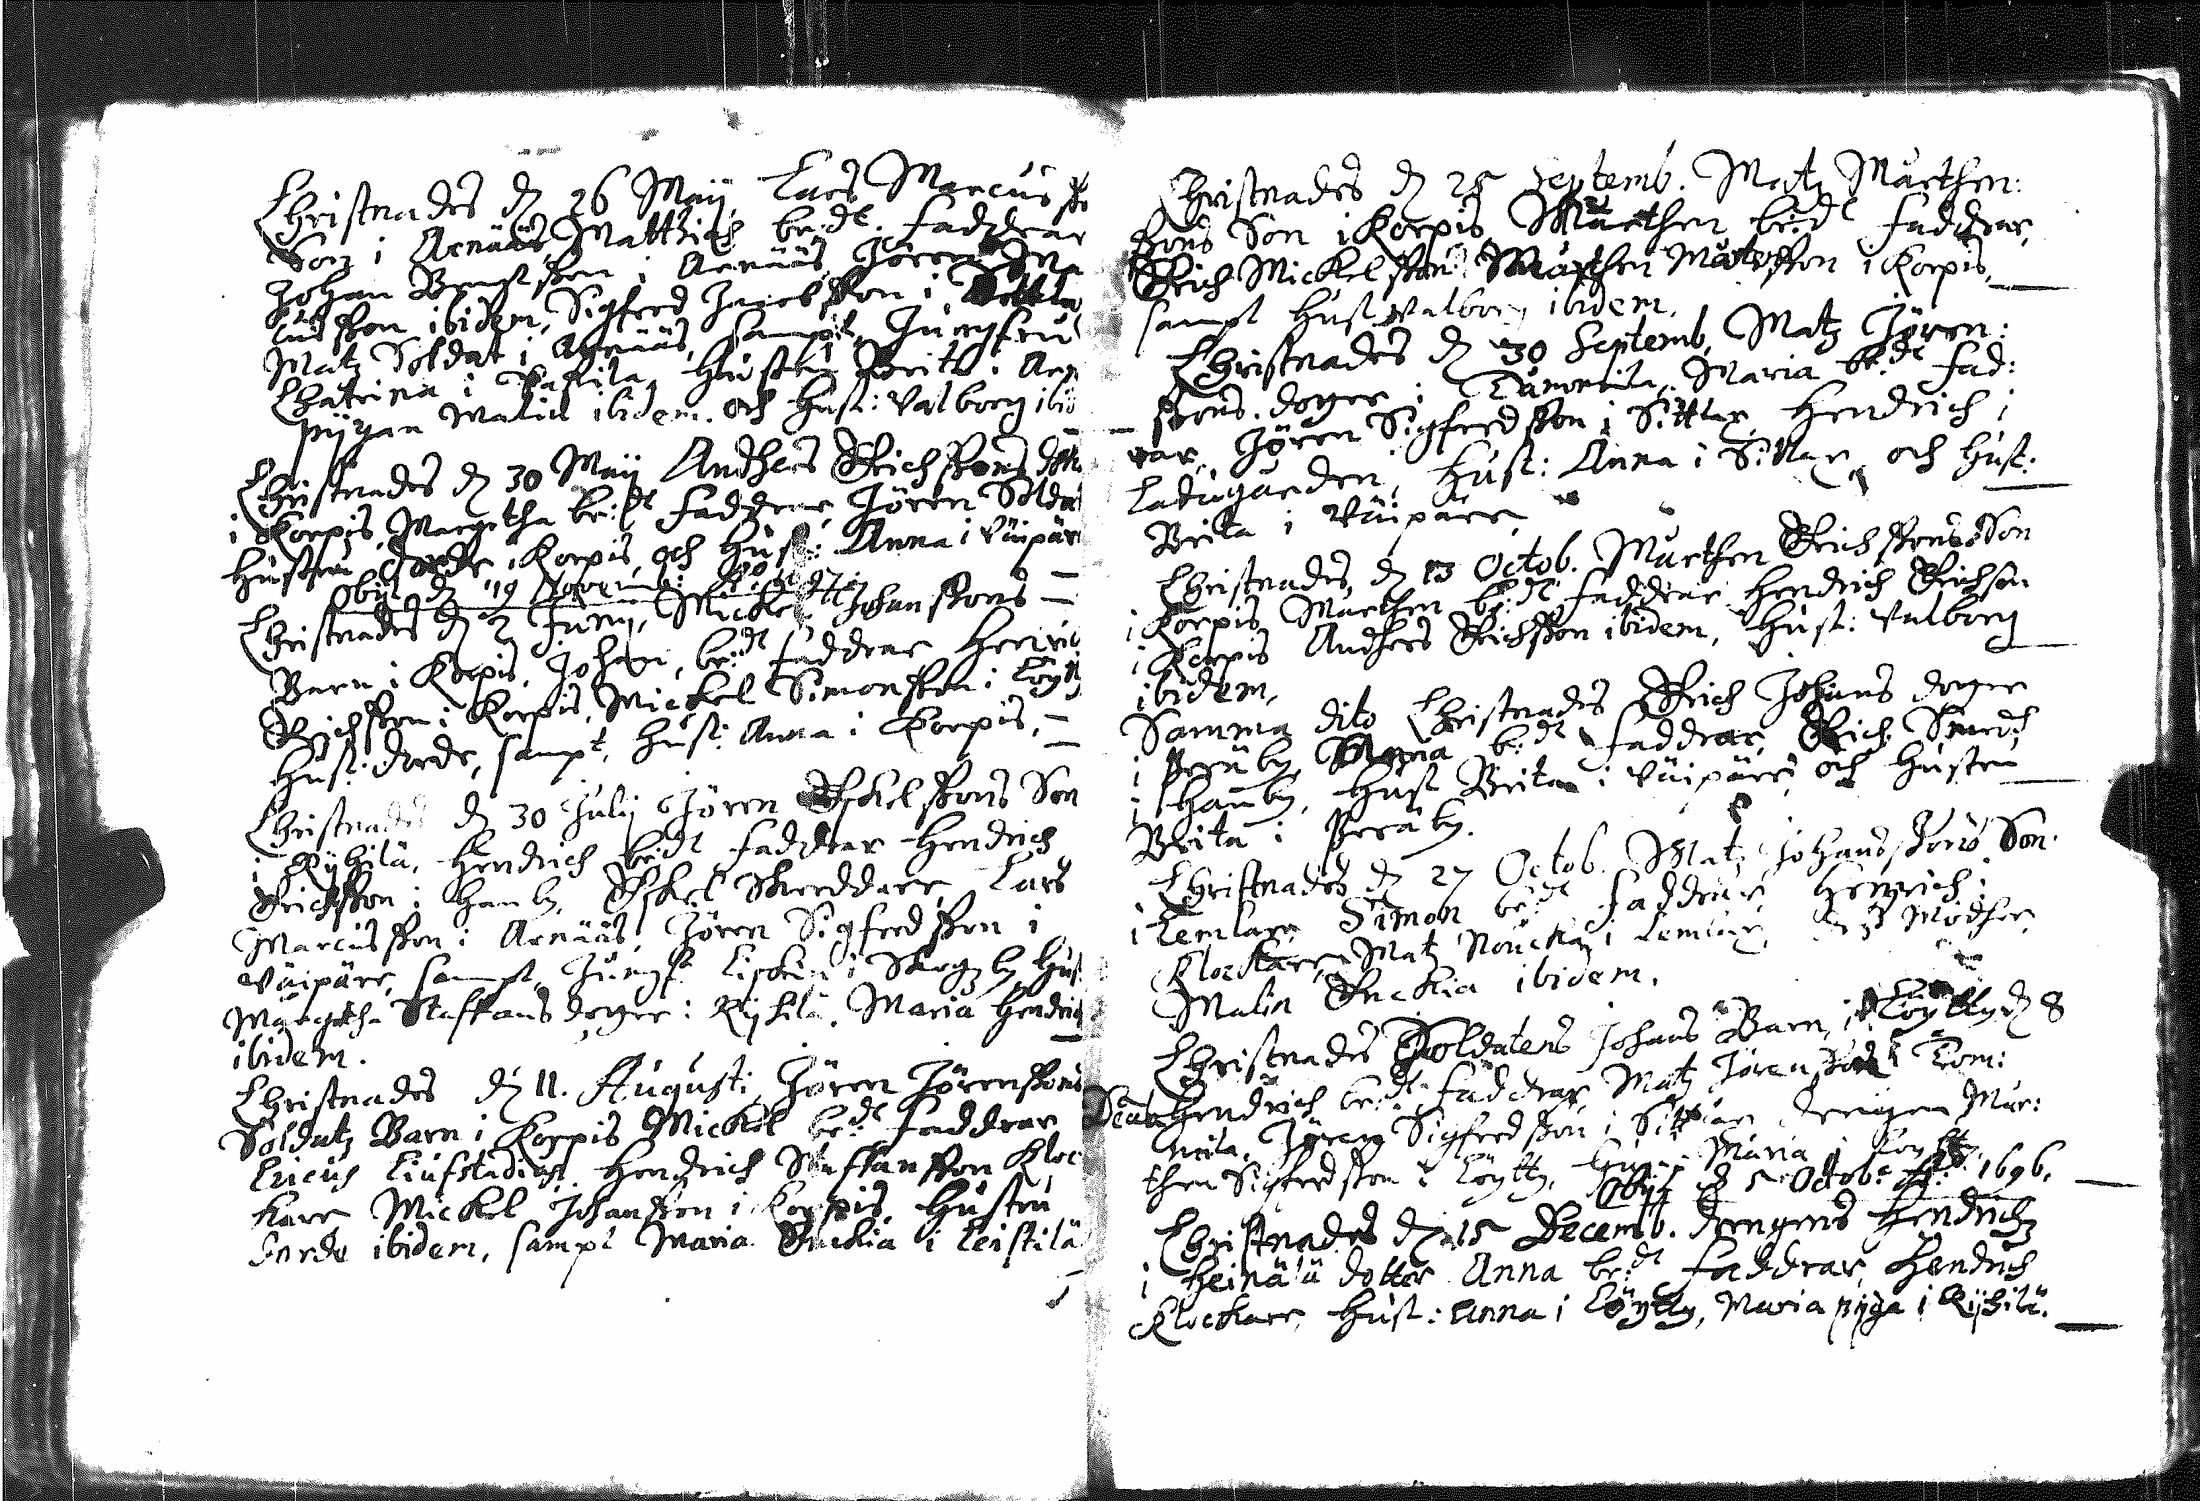 Christnades dn 26 Maij, Lars Marcus sso
Son i Arnääs, Matthias be:dt. Faddrar
Johan Bengtsson i Arnääs, Jören
sson ibidem, Sigfred Jacobsson i
Matz Soldat i Arnääs, sampt, Jungfru
Chatrina i hustru Brita i Arn
pijgan Malin ibidem. och Hust: Valborg ibid
Christnades dn 30 Maij Anders Erich ssons dot
i Korpis, Margetha be:dt Faddrar, Jören Solda
Hustru Dorde i Korpis, och Hust: Anna i Väipär
obijt dn 19 Novemb:
Christnades dn 2 Junij, Mickel Johanssons
Barn i Korpis, Johan, be:dt Faddrar Henric
Erichsson i Korpis, Mickel Simonsson i Löytt
Hust: dorde, sampt, Hust: Anna i Korpis,
Christnades dn 30 Julij Jören Eskelssons Son
i Kyhilä, Hendrich be:dt Faddrar Hendrich
Erichsson i Hanby, Eskel Skreddare, Lars
Marcusson i Arnääs, Jören Sigfredsson i
Väipäre, sampt, Jungf: i Skogzby, Hust
Margetha Staffans doger i Kyhilä, Maria Hendrich
ibidem.
Christnades dn 11. Augusti, Jören Jörenssons
Soldatz Barn i Korpis Mickel be:dt Faddrar
Ericus Liufstadius, Hendrich Staffansson Kloc
kare Mickel Johansson i Korpis Hustru
Dorde ibidem, sampt Maria Enckia i Leistilä
Christnades dn 25 Septemb. Matz Mårthen:
ssons Son i Korpis Mårthen be:dt Faddrar,
Erich Mickelsson Mårthen Matzsson i Korpis,
sampt Hust Valborg ibidem.
Christnades dn 30 Septemb, Matz Jören:
ssons. doger i Tammila, Maria be:dt Fad:
rar, Jören Sigfredsson i Sittlax Hendrich i
Ladugarden, Hust: Anna i Sittlax, och Hust:
Brita i Väipäre
Christnades dn 13 Octob. Mårthen Erichssons Son
i Korpis Mårthen be:dt Faddrar Hendrich Erichson
i Korpis Anders Erichsson ibidem, Hust: Valborg
ibidem,
Samma dito Christnades Erich Johans doger
i Peräby, Anna be:dt Faddrar, Erich Smedh
i Hanby, Hust Brita i Väipäre, och Hustru
Brita i Peräby.
Christnades dn 27 Octob. Matz Johanssons Son.
i Lemlax Simon be:dt Faddrar, Henrich
Klockare, Matz i Lemlax, Modher
Malin Enckia ibidem.
Christnades Soldatens Johans Barn, i Löytty dn 8
Decemb Hendrich be:dt Faddrar, Matz Jörensson i Tom:
mila, Jören Sigfredsson i Sittlax drengen Mår:
then Sigfredsson i Löytty, Hust: Maria i Löytty
Obijt dn 5 Octob: 1696.
Christnades dn 15 Decemb. drengens Hendrichz
i Heinälä dotter Anna be:dt Faddrar, Hendrich
Klockare, Hust: Anna i Löytty, Maria pijga i Kijhilä.